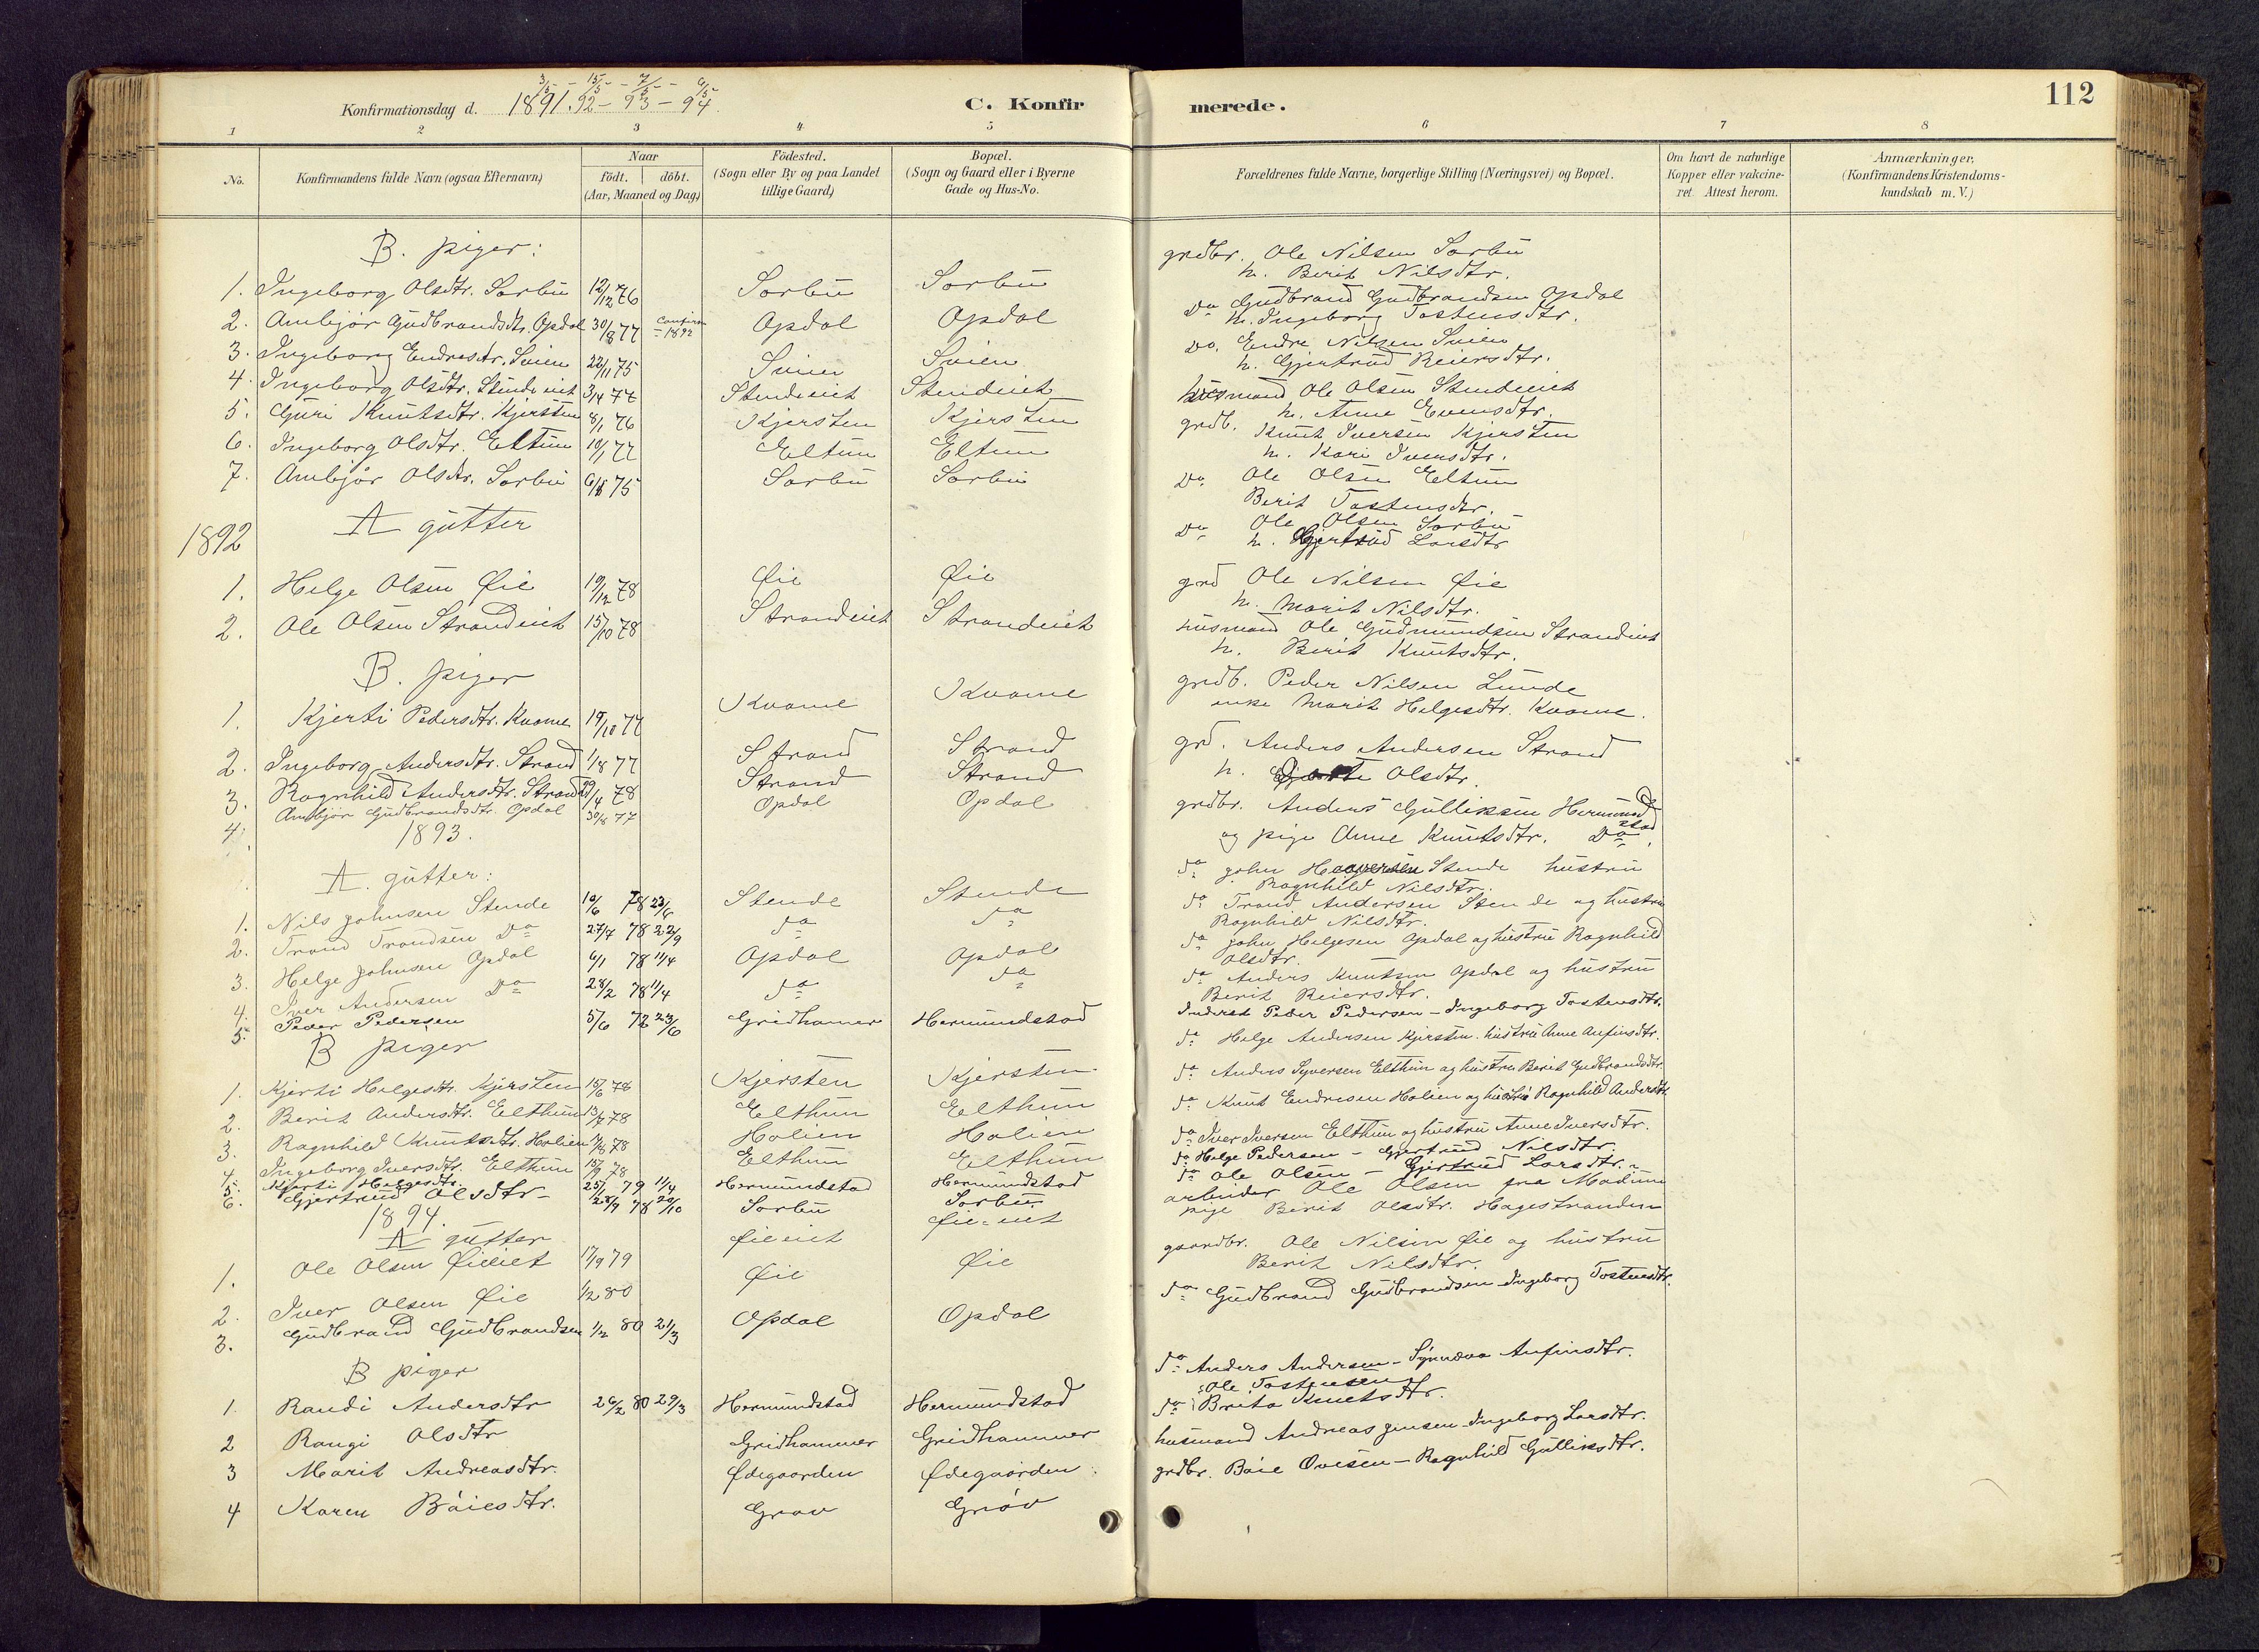 3/5 - 15/5 - 7/5 - 6/5
Konfirmationsdag d. 1891. 92 - 93 - 94.
C. Konfirmerede.
112
1 2 3 4 5 6 7 8
No.
Konfirmandens fulde Navn (ogsaa Efternavn)
Naar
födt. döbt.
(Aar, Maaned og Dag)
Födested.
(Sogn eller By og paa Landet
tillige Gaard)
Bopæl.
(Sogn og Gaard eller i Byerne
Gade og Hus-No.
Forældrenes fulde Navne, borgerlige Stilling (Næringsvei) og Bopæl.
Om havt de naturlige
Kopper eller vakcine-
ret Attest herom.
Anmærkninger,
(Konfirmandens Kristendoms-
kundskab m. V.)
B. piger:
1. Ingeborg Olsdtr. Sorbu 12/12 76 Sorbu Sorbu grdbr. Ole Nilsen Sorbu
h. Berit Nilsdtr.
2. Ambjør Gudbrandsdtr. Opdal 30/8 77 Confirm 1892 Opdal Opdal Do Gudbrand Gudbrandsen Opdal
h. Ingeborg Tostensdtr.
3. Ingeborg Endresdtr. Svien 22/11 75 Svien Svien Do. Endre Nilsen Svien
h. Gjertrud Reiersdtr.
4. Ingeborg Olsdtr. Stendeiet 3/4 77 Stendeiet Stendeiet husmand Ole Olsen Stendeiet
h. Anne Evensdtr.
5. Guri Knutsdtr. Kjersten 8/1 76 Kjersten Kjersten grdb. Knut Iversen Kjersten
h. Kari Iversdtr.
6. Ingeborg Olsdtr. Eltun 10/1 77 Eltun Eltun Do. Ole Olsen Eltun
Berit Tostensdtr.
7. Ambjør Olsdtr. Sorbu 75 Sorbu Sorbu Do Ole Olsen Sorbu
h. Gjertrud Larsdtr
1892 A gutter
1. Helge Olsen Øie 19/12 78 Øie Øie grd Ole Nilsen Øie
h. Marit Nilsdtr.
2. Ole Olsen Strandeiet 15/10 78 Strandeiet Strandeiet husmand Ole Gudmundsen Strandeiet
h. Berit Knutsdtr.
B. piger
1. Kjersti Pedersdtr. Kvame 19/10 77 Kvame Kvame grdb. Peder Nilsen Lunde
enke Marit Helgesdtr. Kvame.
2. Ingeborg Andersdtr. Strand 1/8 77 Strand Strand grd. Anders Andersen Strand
h. Olsdtr.
3. Ragnhild Andersdtr. Strand /4 78 Strand Strand grdbr. Anders Gulliksen Hermundstad
og pige Anne Knutsdtr. Do.
4. Ambjør Gudbrandsdtr. Opdal 30/8 77 Opdal Opdal
1893.
A. gutter:
1. Nils Johnsen Stende 10/6 78 23/6 Stende Stende do John Stende hustru
Ragnhild Nilsdtr.
2. Trond Trondsen Do 27/7 78 22/9 do do do Trond Andersen Stende og hustru
Ragnhild Nilsdtr.
3. Helge Johnsen Opdal 6/1 78 11/4 Opdal Opdal do John Helgesen Opdal og hustru Ragnhild
Olsdtr.
4. Iver Andersen Do 28/2 78 11/4 do do do Anders Knutsen Opdal og hustru
Berit Reiersdtr.
5. Peder Pedersen 5/6 78 23/6 Gridhamer Hermundstad Inderst Peder Pedersen - Ingeborg Tostensdtr.
B piger
1. Kjersti Helgesdtr. Kjersten 15/6 78 Kjersten Kjersten do Helge Andersen Kjersten. hustru Anne Anfinsdtr.
2. Berit Andersdtr. Elthun 78 Elthun Elthun do Anders Syversen Elthun og hustru Berit Gudbrandsdtr
3. Ragnhild Knutsdtr. Holien 78 Holien Holien do Knut Endresen Holien og hustru Ragnhild Andersdtr
4. Ingeborg Iversdtr. Elthun 15/9 78 Elthun Elthun do Iver Iversen Elthun og hustru Anne Iversdtr.
5. Kjersti Helgesdtr. 79 11/4 Hermundstad Hermundstad do Helge Pedersen - Gjertrud Nilsdtr.
6. Gjertrud Olsdtr - 28/9 78 20/10 Sorbu Sorbu do Ole Olsen - Gjertrud Larsdtr.
1894.
A gutter
1. Ole Olsen Øieeiet 17/9 79 Øieeiet Øie-eiet arbeider Ole Olsen fra Modum
pige Berit Olsdtr. Hagestranden
2. Iver Olsen Øie 1/2 80 Øie Øie gaardbr. Ole Nilsen Øie og hustru
Berit Nilsdtr.
3. Gudbrand Gudbrandsen 1/2 80 21/3 Opdal Opdal do Gudbrand Gudbrandsen - Ingeborg Tostensdtr.
B piger
1. Randi Andersdtr 26/2 80 29/3 Hermundstad Hermundstad do Anders Andersen - Synneva Anfinsdtr.
2 Rangi Olsdtr Gridhammer Gridhammer do Ole Tostensen
Brita Knutsdtr.
3 Marit Andreasdtr. Ødegaarden Ødegaarden husmand Andreas Jensen - Ingeborg Larsdtr.
4 Karen Bøiesdtr. Grav Grøv grdbr. Bøie Ovesen - Ragnhild Gulliksdtr.